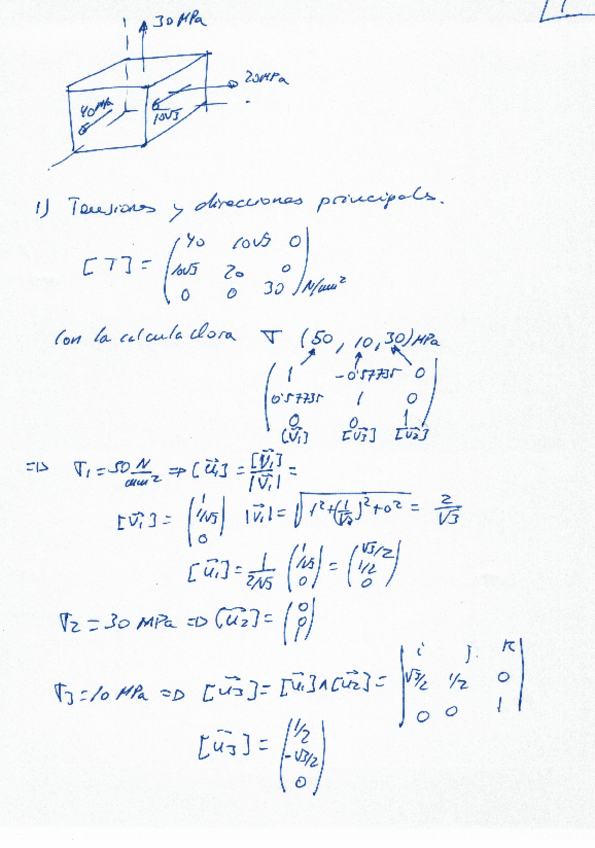 1
30 MPa
20MPa
40 MPa
10√3
1) Tensiones y direcciones principales.
[T] = (40 10√3 0
10√3 20 0
0 0 30) N/mm²
Con la calculadora σ (50, 10, 30) MPa
(1 -0'57735 0
0'57735 1 0
0 0 1)
[v⃗1] [v⃗3] [v⃗2]
=> σ1 = 50 N/mm² => [u⃗1] = [v⃗1]/|v⃗1| =
[v⃗1] = (1 1/√3 0) |v⃗1| = √(1² + (1/√3)² + 0²) = 2/√3
[u⃗1] = 1/(2/√3) (1 1/√3 0) = (√3/2 1/2 0)
σ2 = 30 MPa => [u⃗2] = (0 0 1)
σ3 = 10 MPa => [u⃗3] = [u⃗1] ∧ [u⃗2] = |i j k
√3/2 1/2 0
0 0 1|
[u⃗3] = (1/2 -√3/2 0)